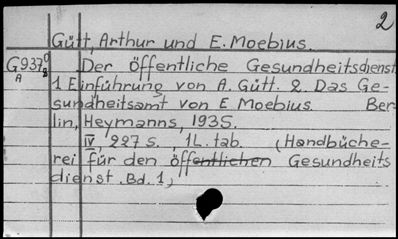 2
Gütt, Arthur und E. Moebius.
G 937 0/2 Der öffentliche Gesundheitsdienst
A 1 Einführung von A. Gütt. 2. Das Ge-
sundheitsamt von E Moebius. Ber-
lin, Heymanns, 1935.
IV, 227 S., 1 L. tab. (Handbüche-
rei für den öffentlichen Gesundheits
dienst. Bd. 1,